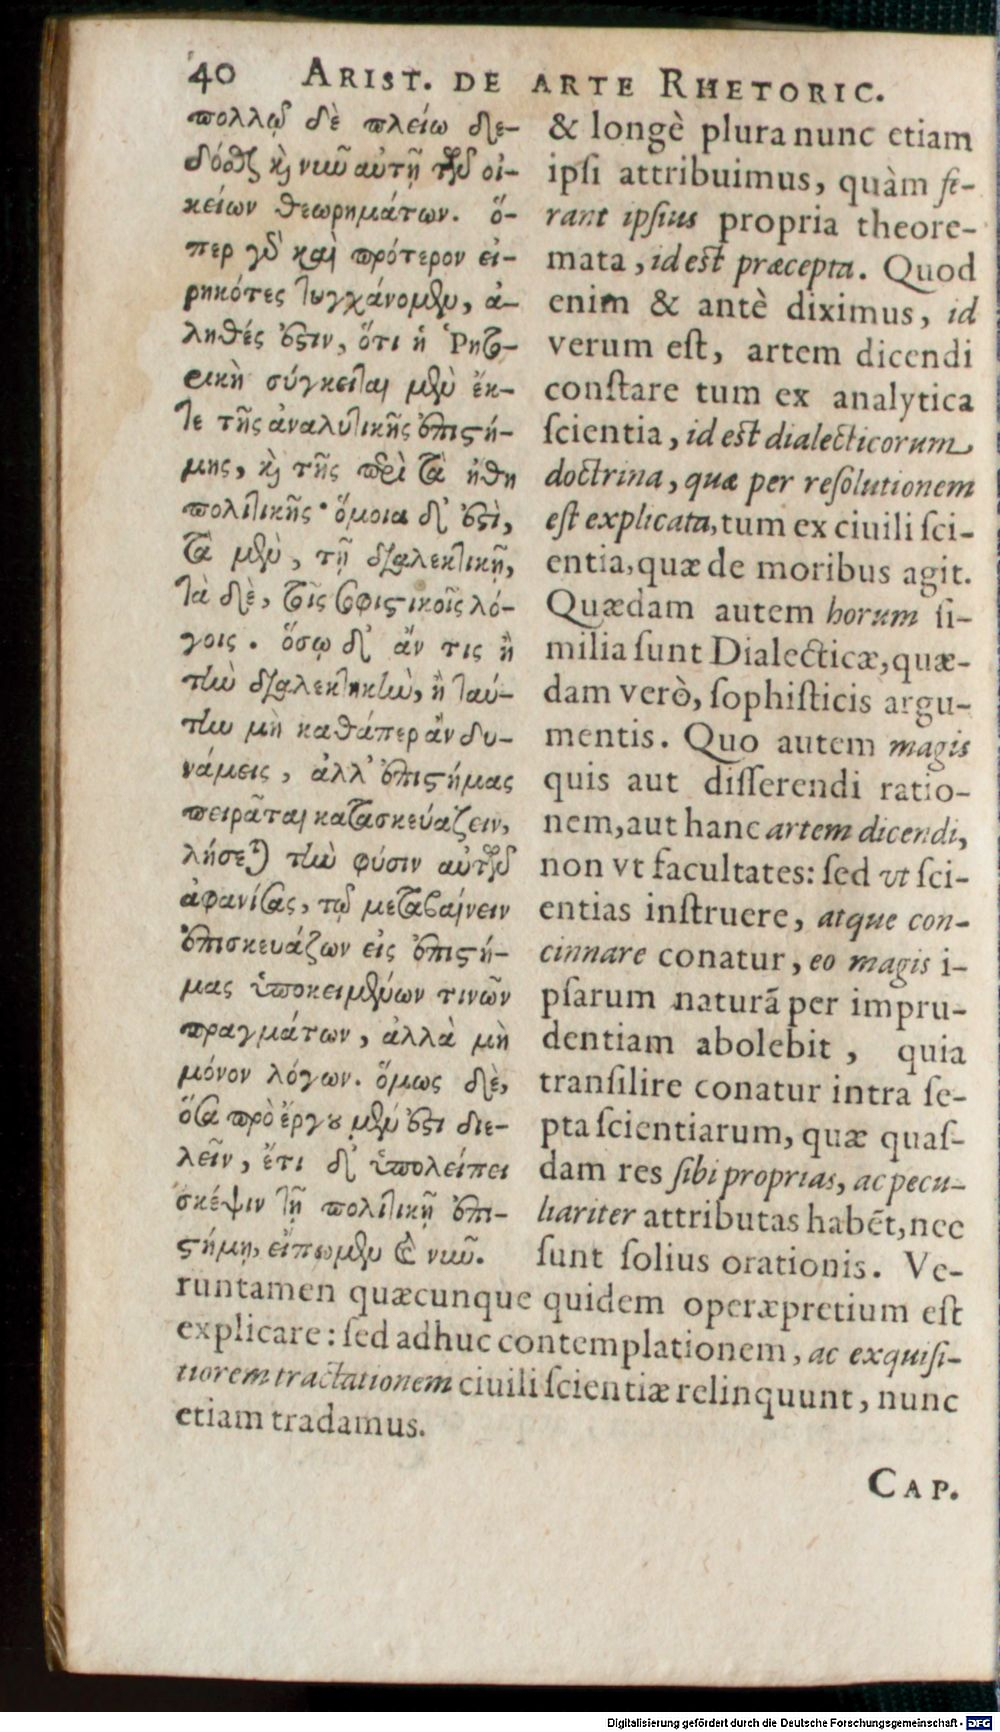 40 ARIST. DE ARTE RHETORIC.
πολλῷ δὲ πλείω δε-
δόσθαι καὶ νῦν αὐτῇ τῶν οἰ-
κείων θεωρημάτων. ὅ-
περ γὰρ καὶ πρότερον εἰ-
ρηκότες τυγχάνομεν, ἀ-
ληθές ἐστιν, ὅτι ἡ Ῥητο-
ρικὴ σύγκειται μὲν ἔκ-
τε τῆς ἀναλυτικῆς ἐπιστή-
μης, καὶ τῆς περὶ τὰ ἤθη
πολιτικῆς· ὅμοια δ' ἐστὶ,
τὰ μὲν, τῇ διαλεκτικῇ,
τὰ δὲ, τοῖς σοφιστικοῖς λό-
γοις. ὅσῳ δ' ἄν τις ἢ
τὴν διαλεκτηκὴν, ἢ ταύ-
την μὴ καθάπερ ἂν δυ-
νάμεις, ἀλλ' ἐπιστήμας
πειρᾶται κατασκευάζειν,
λήσεται τὴν φύσιν αὐτῶν
ἀφανίσας, τῷ μεταβαίνειν
ἐπισκευάζων εἰς ἐπιστή-
μας ὑποκειμένων τινῶν
πραγμάτων, ἀλλὰ μὴ
μόνον λόγων. ὅμως δὲ,
ὅσα πρὸ ἔργου μέν ἐστι διε-
λεῖν, ἔτι δ' ὑπολείπει
σκέψιν τῇ πολιτικῇ ἐπι-
στήμῃ, εἴπωμεν καὶ νῦν.
& longè plura nunc etiam
ipsi attribuimus, quàm fe-
rant ipsius propria theore-
mata, id est præcepta. Quod
enim & antè diximus, id
verum est, artem dicendi
constare tum ex analytica
scientia, id est dialecticorum
doctrina, quæ per resolutionem
est explicata, tum ex ciuili sci-
entia, quæ de moribus agit.
Quædam autem horum si-
milia sunt Dialecticæ, quæ-
dam verò, sophisticis argu-
mentis. Quo autem magis
quis aut disserendi ratio-
nem, aut hanc artem dicendi,
non vt facultates: sed vt sci-
entias instruere, atque con-
cinnare conatur, eo magis i-
psarum naturã per impru-
dentiam abolebit, quia
transilire conatur intra se-
pta scientiarum, quæ quas-
dam res sibi proprias, ac pecu-
liariter attributas habēt, nec
sunt solius orationis. Ve-
runtamen quæcunque quidem operæpretium est
explicare: sed adhuc contemplationem, ac exquisi-
tiorem tractationem ciuili scientiæ relinquunt, nunc
etiam tradamus.
CAP.
Digitalisierung gefördert durch die Deutsche Forschungsgemeinschaft - DFG